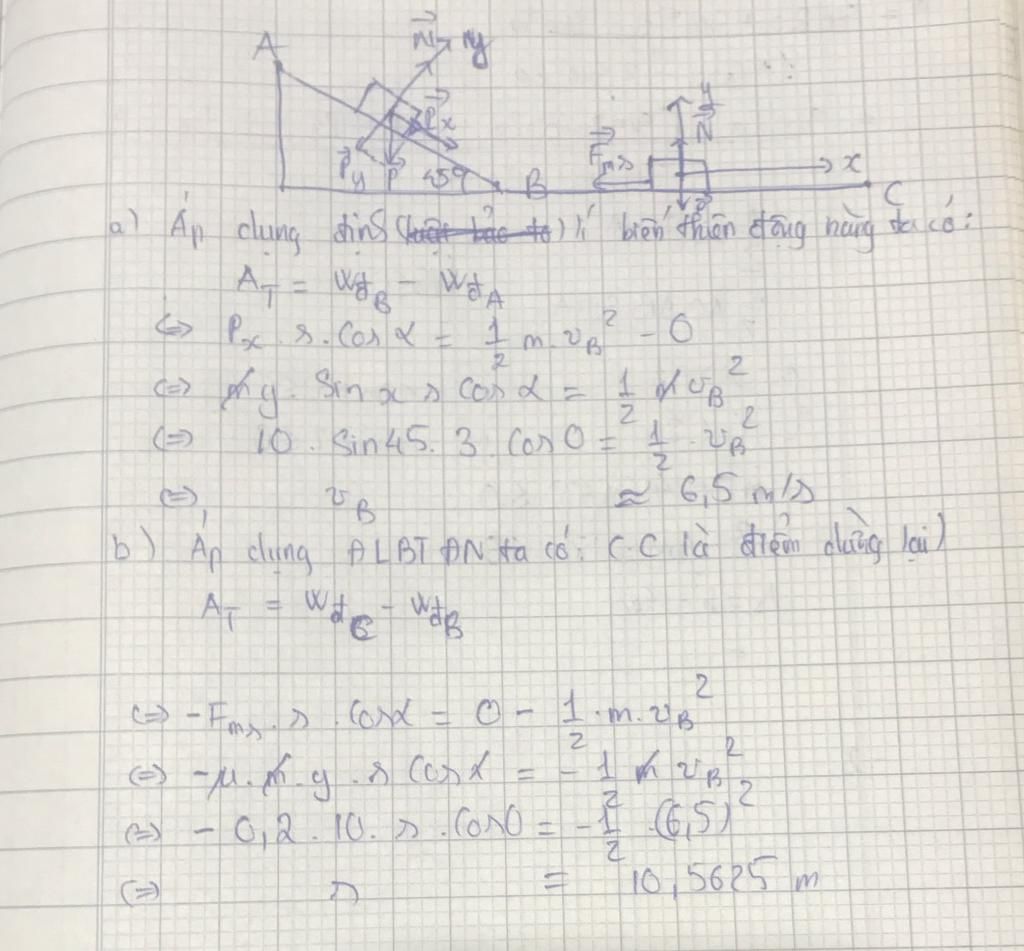 A
N⃗ y
P⃗x
P⃗y P 45° B F⃗ms N⃗ y x C
a) Áp dụng định lí biến thiên động năng ta có:
A_T = Wđ_B - Wđ_A
⇔ Px . s . cos α = 1/2 m . v_B² - 0
⇔ m g . Sin α s cos α = 1/2 m v_B²
⇔ 10 . sin 45 . 3 . cos 0 = 1/2 . v_B²
⇔ v_B ≈ 6,5 m/s
b) Áp dụng ĐLBT ĐN ta có: ( C là điểm dừng lại)
A_T = Wđ_C - Wđ_B
⇔ - Fms . s . cos α = 0 - 1/2 . m . v_B²
⇔ - μ . m . g . s cos α = - 1/2 m v_B²
⇔ - 0,2 . 10 . s . cos 0 = - 1/2 . (6,5)²
⇔ s = 10,5625 m